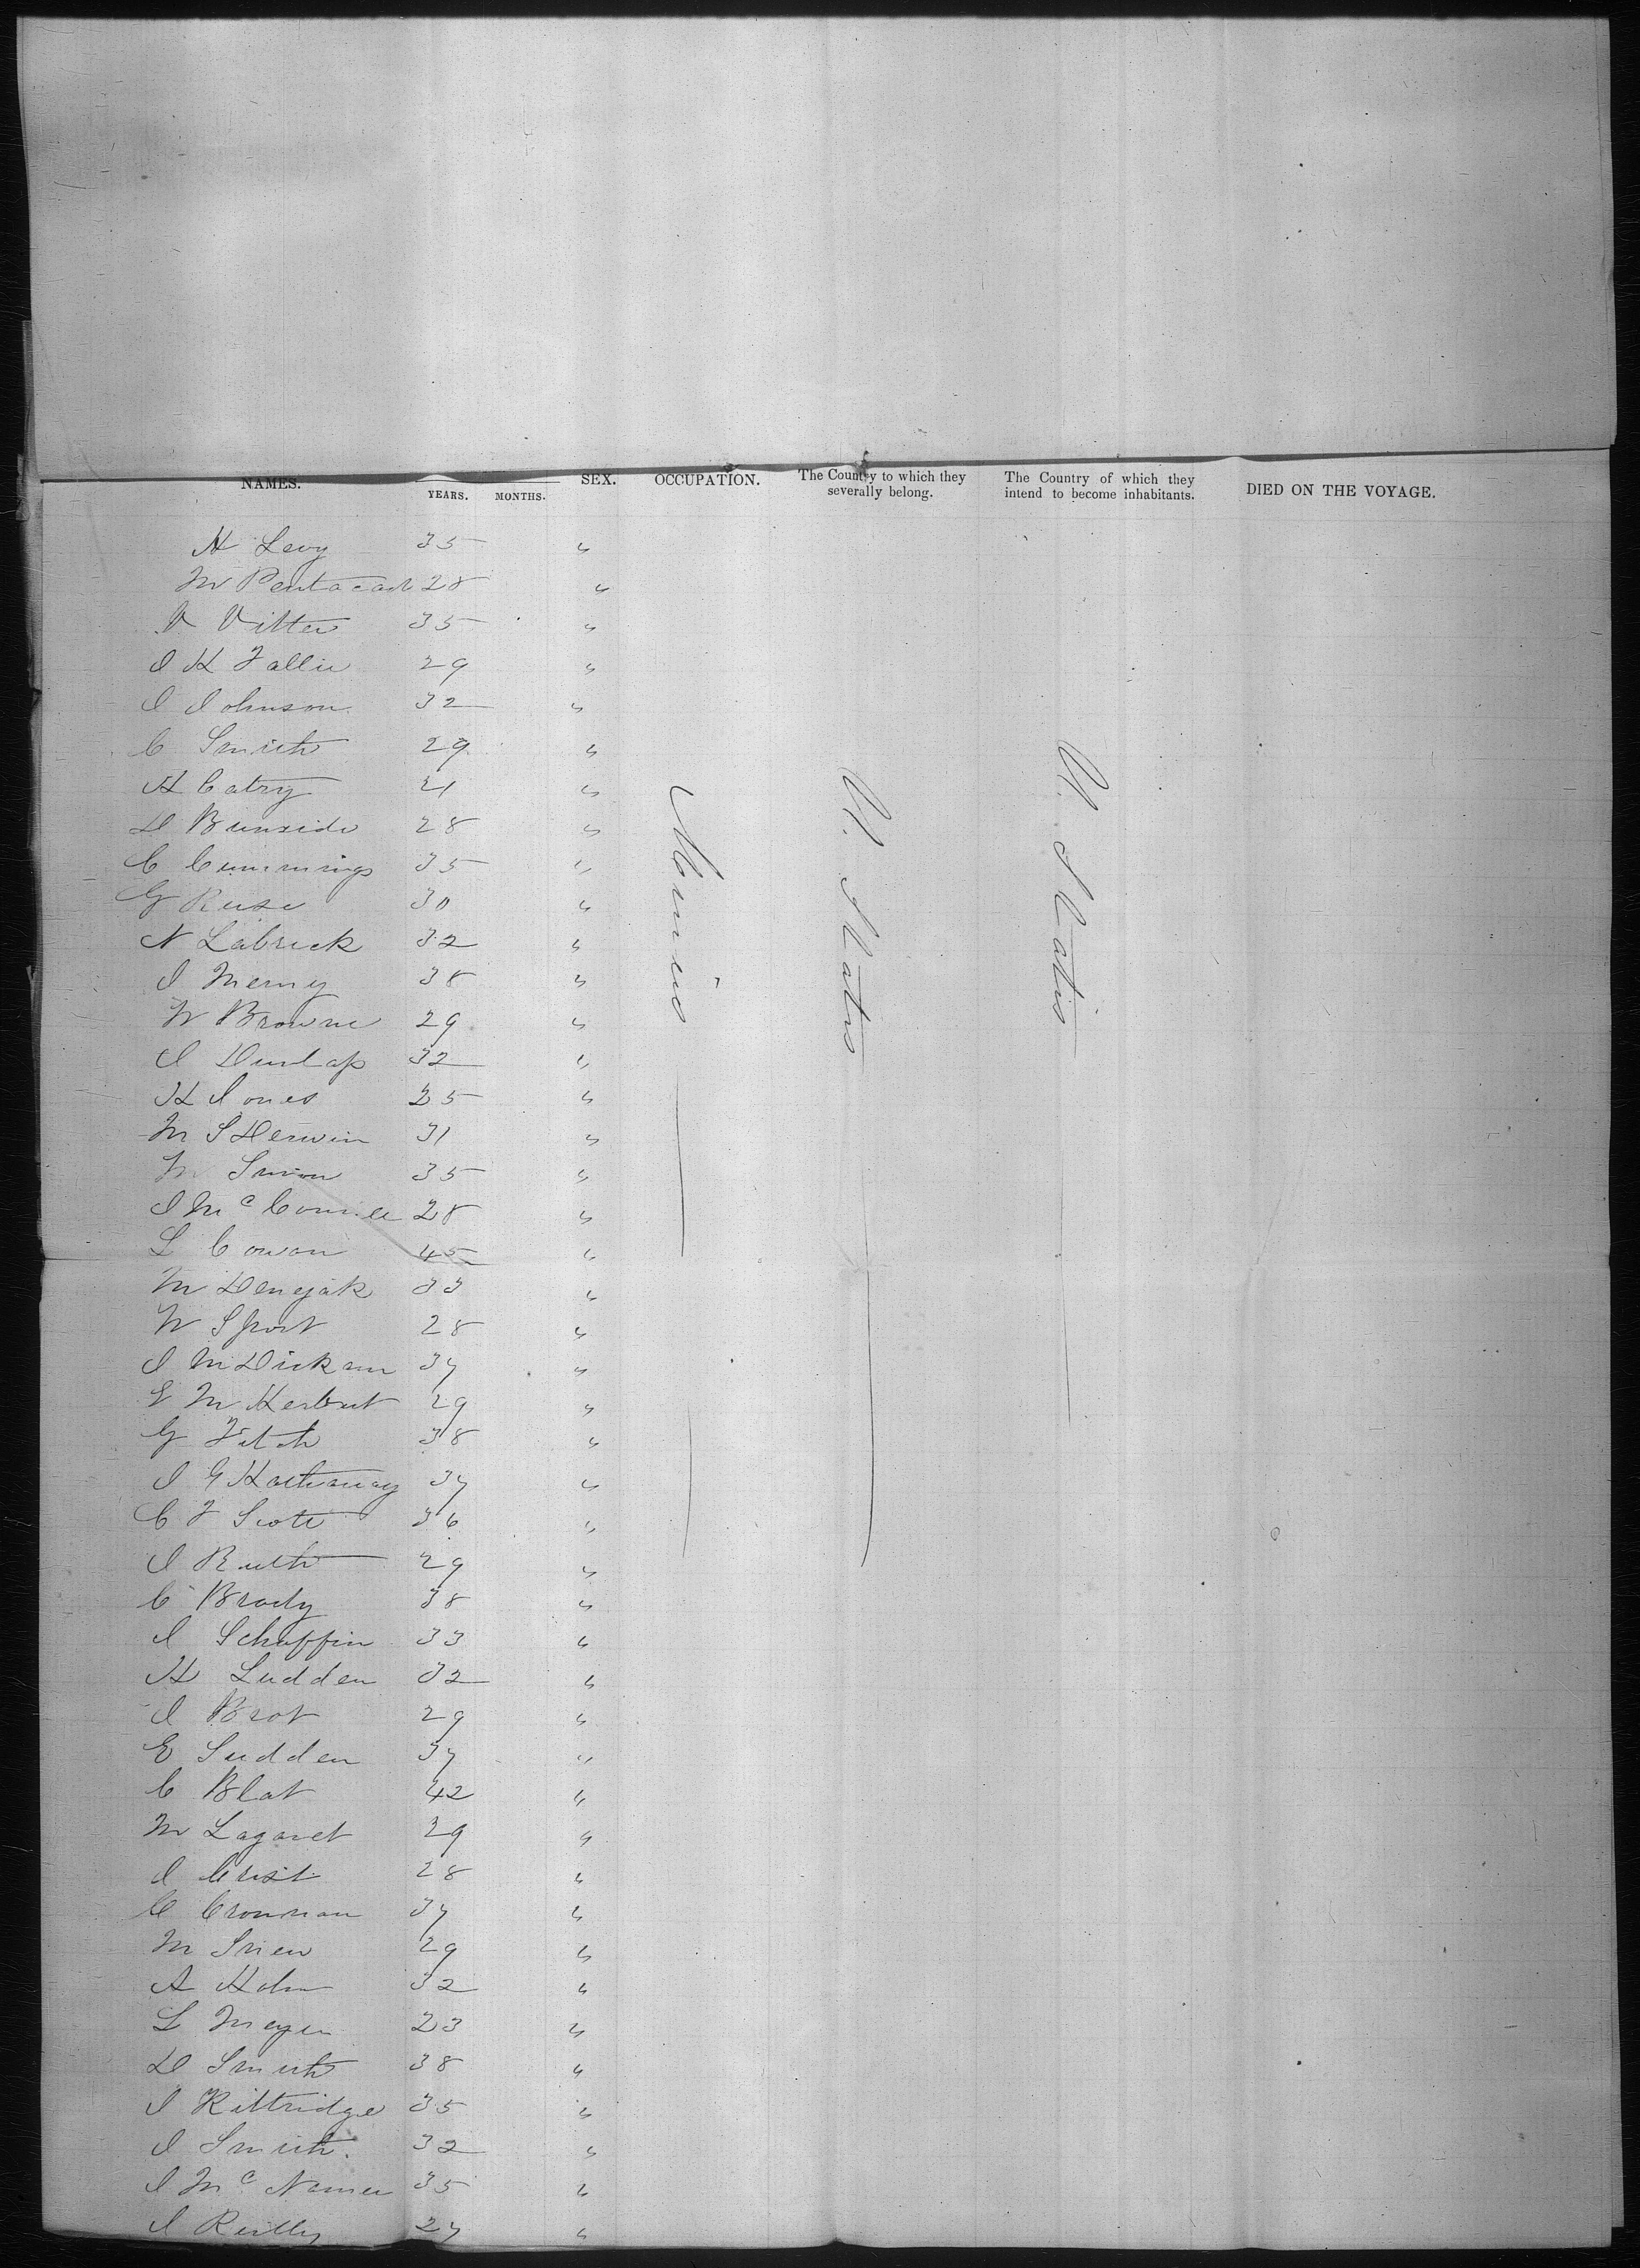 NAMES. YEARS. MONTHS. SEX. OCCUPATION. The Country to which they severally belong. The Country of which they intend to become inhabitants. DIED ON THE VOYAGE.
H Levy 35 "
M 28 "
V Vitter 35 "
J H 29 "
J Johnson 32 "
C Smith 29 "
H Catry 21 "
D Burnside 28 "
C Cummings 35 "
G Ruse 30 "
N Labrick 32 "
J Merry 38 "
W Browne 29 "
J Dunlap 32 "
H Jones 25 "
M S Derwin 31 "
Simon 35 "
J Mc 28 "
L Cowan 45 "
M 33 "
W Sport 28 "
J M 37 "
E M Herbert 29 "
G Fitch 38 "
J G Hathaway 37 "
C F Scott 36 "
J Ruth 29 "
C Brady 38 "
J Schaffin 33 "
H Ludden 32 "
J Brot 29 "
E Sudden 37 "
C Blat 42 "
M Lagaret 29 "
J Crist 28 "
C Cronnan 37 "
M Snew 29 "
A Hohn 32 "
L Meyer 23 "
D Smith 38 "
J Kittridge 35 "
J Smith 32 "
J Mc Namer 35 "
J Reilly 27 "
Miners
U. States
U. States